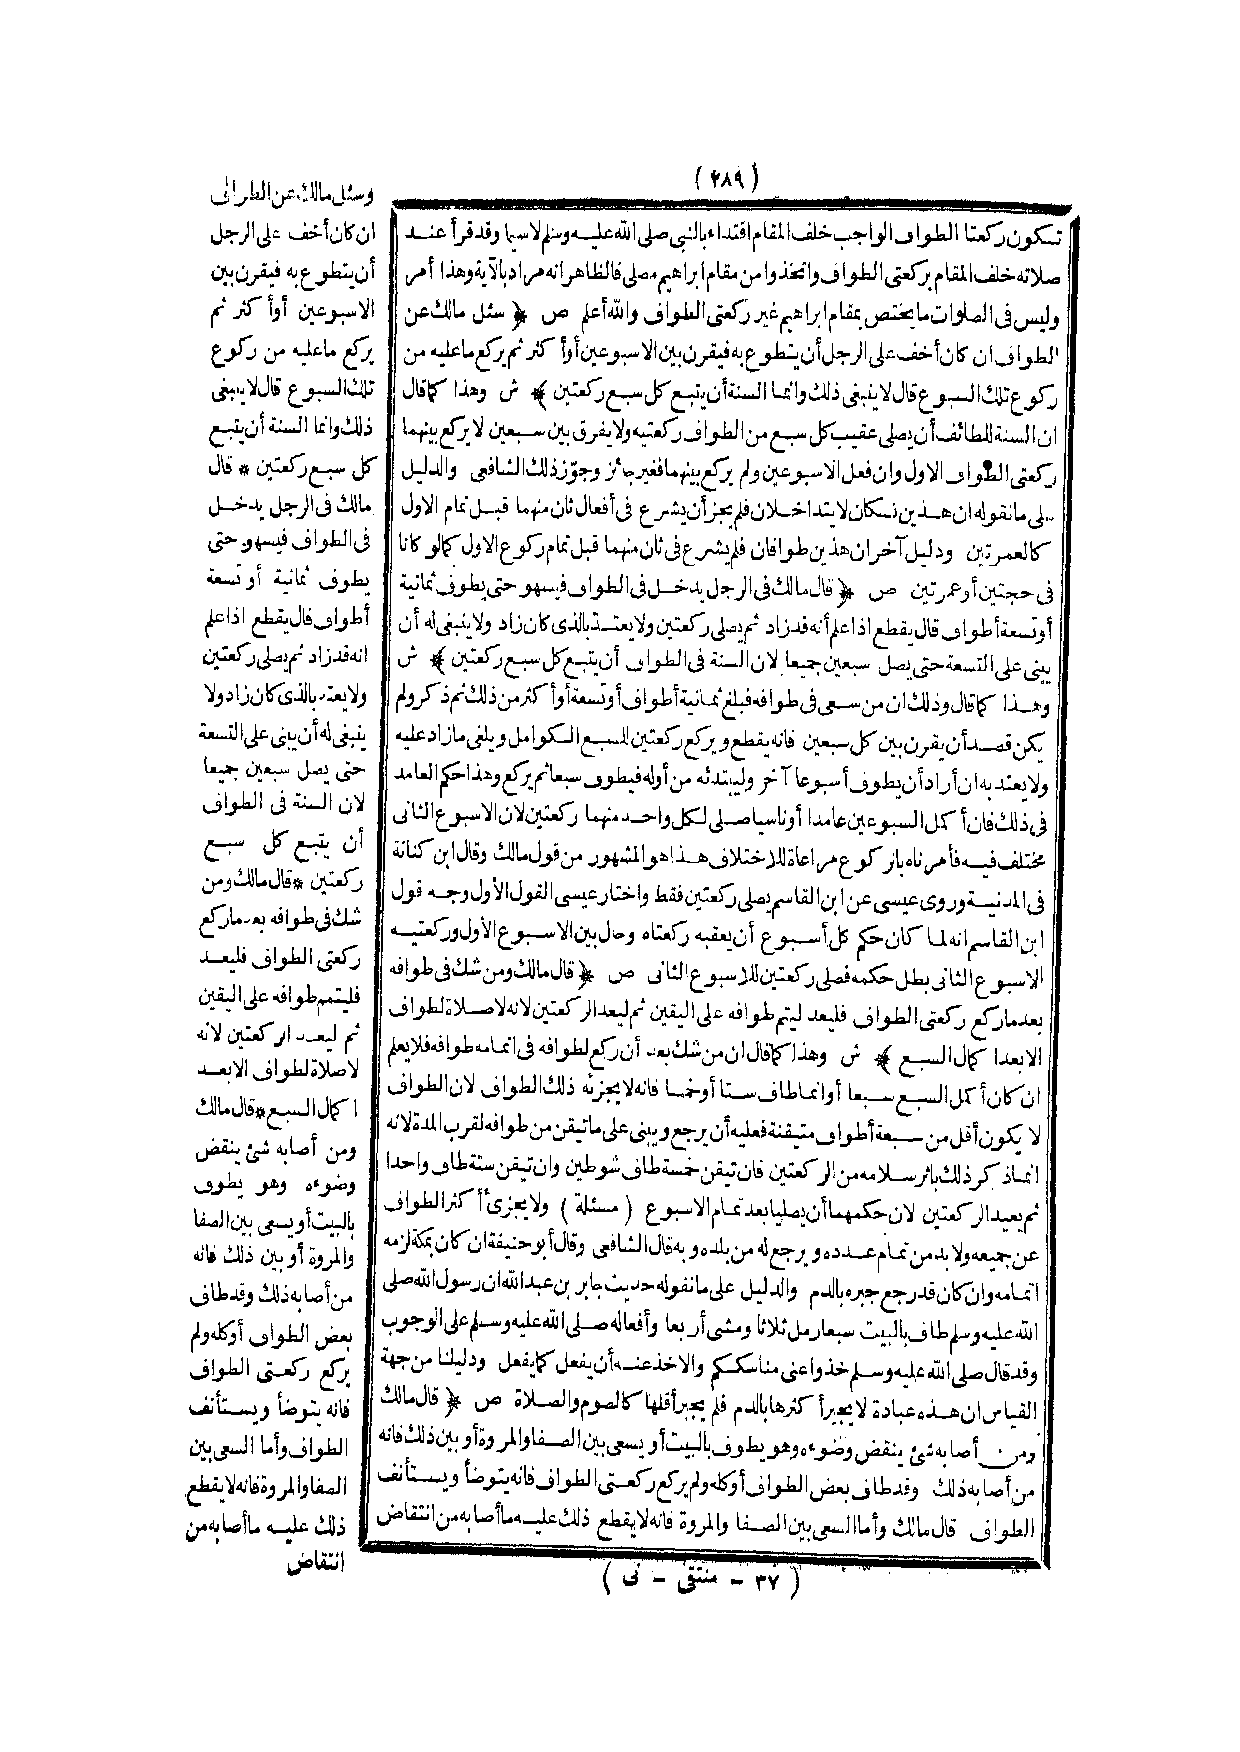 (٢٨٩)
تكون ركعتا الطواف الواجب خلف المقام اقتداء بالنبي صلى الله عليه وسلم لا سيما وقد قرأ عند
صلاته خلف المقام بركعتي الطواف واتخذوا من مقام ابراهيم مصلى فالظاهر انه مراد بالآية وهذا أمر
وليس في الصلوات ما يختص بمقام ابراهيم غير ركعتي الطواف والله أعلم ص ﴿ سئل مالك عن
الطواف ان كان أخف على الرجل أن يتطوع به فيقرن بين الاسبوعين أو أكثر ثم يركع ما عليه من
ركوع تلك السبوع قال لا ينبغي ذلك وانما السنة أن يتبع كل سبع ركعتين ﴾ ش وهذا كما قال
ان السنة للطائف أن يصلى عقيب كل سبع من الطواف ركعتيه ولا يفرق بين سبعين لا يركع بينهما
ركعتي الطواف الاول وان فعل الاسبوعين ولم يركع بينهما فغير جائز وجوّز ذلك الشافعي والدليل
على ما نقوله ان هذين نسكان لا يتداخلان فلم يجز أن يشرع في أفعال ثان منهما قبل تمام الاول
كالعمرتين ودليل آخر ان هذين طوافان فلم يشرع في ثان منهما قبل تمام ركوع الاول كما لو كانا
في حجتين أو عمرتين ص ﴿ قال مالك في الرجل يدخل في الطواف فيسهو حتى يطوف ثمانية
أو تسعة أطواف قال يقطع اذا علم أنه قد زاد ثم يصلى ركعتين ولا يعتد بالذي كان زاد ولا ينبغي له أن
يبني على التسعة حتى يصل سبعين جميعا لان السنة في الطواف أن يتبع كل سبع ركعتين ﴾ ش
وهذا كما قال وذلك ان من سعى في طوافه فبلغ ثمانية أطواف أو تسعة أو أكثر من ذلك ثم ذكر ولم
يكن قصد أن يقرن بين كل سبعين فانه يقطع ويركع ركعتين للسبع الكوامل ويلغي ما زاد عليه
ولا يعتد به ان أراد أن يطوف أسبوعا آخر وليبتدئه من أوله فيطوف سبعا ثم يركع وهذا حكم العامد
في ذلك فان أكمل السبوعين عامدا أو ناسيا صلى لكل واحد منهما ركعتين لان الاسبوع الثاني
مختلف فيه فأمرناه بالركوع مراعاة للاختلاف هذا هو المشهور من قول مالك وقال ابن كنانة
في المدنية وروى عيسى عن ابن القاسم يصلى ركعتين فقط واختار عيسى القول الأول وجه قول
ابن القاسم انه لما كان حكم كل أسبوع أن يعقبه ركعتاه وحال بين الاسبوع الأول وركعتيه
الاسبوع الثاني بطل حكمه فصلى ركعتين للاسبوع الثاني ص ﴿ قال مالك ومن شك في طوافه
بعد ما ركع ركعتي الطواف فليعد ليتم طوافه على اليقين ثم ليعد الركعتين لانه لا صلاة لطواف
الا بعد اكمال السبع ﴾ ش وهذا كما قال ان من شك بعد أن ركع لطوافه في اتمامه طوافه فلا يعلم
ان كان أكمل السبع سبعا أو انما طاف ستا أو خمسا فانه لا يجزئه ذلك الطواف لان الطواف
لا يكون أقل من سبعة أطواف متيقنة فعليه أن يرجع ويبني على ما تيقن من طوافه لقرب المدة لانه
انما ذكر ذلك باثر سلامه من الركعتين فان تيقن خمسة طاف شوطين وان تيقن ستة طاف واحدا
ثم يعيد الركعتين لان حكمهما أن يصليا بعد تمام الاسبوع (مسئلة) ولا يجزئ أكثر الطواف
عن جميعه ولا بد من تمام عدده ويرجع له من بلده وبه قال الشافعي وقال أبو حنيفة ان كان بمكة لزمه
اتمامه وان كان قد رجع جبره بالدم والدليل على ما نقوله حديث جابر بن عبد الله ان رسول الله صلى
الله عليه وسلم طاف بالبيت سبعا رمل ثلاثا ومشى أربعا وأفعاله صلى الله عليه وسلم على الوجوب
وقد قال صلى الله عليه وسلم خذوا عني مناسككم والاخذ عنه أن يفعل كما يفعل ودليلنا من جهة
القياس ان هذه عبادة لا يجبر أكثرها بالدم فلم يجبر أقلها كالصوم والصلاة ص ﴿ قال مالك
ومن أصابه شئ ينقض وضوءه وهو يطوف بالبيت أو يسعى بين الصفا والمروة أو بين ذلك فانه
من أصابه ذلك وقد طاف بعض الطواف أو كله ولم يركع ركعتي الطواف فانه يتوضأ ويستأنف
الطواف قال مالك وأما السعي بين الصفا والمروة فانه لا يقطع ذلك عليه ما أصابه من انتقاض
وسئل مالك عن الطواف
ان كان أخف على الرجل
أن يتطوع به فيقرن بين
الاسبوعين أو أكثر ثم
يركع ما عليه من ركوع
تلك السبوع قال لا ينبغي
ذلك وانما السنة أن يتبع
كل سبع ركعتين * قال
مالك في الرجل يدخل
في الطواف فيسهو حتى
يطوف ثمانية أو تسعة
أطواف قال يقطع اذا علم
انه قد زاد ثم يصلى ركعتين
ولا يعتد بالذي كان زاد ولا
ينبغي له أن يبني على التسعة
حتى يصل سبعين جميعا
لان السنة في الطواف
أن يتبع كل سبع
ركعتين * قال مالك ومن
شك في طوافه بعد ما ركع
ركعتي الطواف فليعد
فليتمم طوافه على اليقين
ثم ليعد الركعتين لانه
لا صلاة لطواف الا بعد
اكمال السبع * قال مالك
ومن أصابه شئ ينقض
وضوءه وهو يطوف
بالبيت أو يسعى بين الصفا
والمروة أو بين ذلك فانه
من أصابه ذلك وقد طاف
بعض الطواف أو كله ولم
يركع ركعتي الطواف
فانه يتوضأ ويستأنف
الطواف وأما السعي بين
الصفا والمروة فانه لا يقطع
ذلك عليه ما أصابه من
انتقاض
(٣٧ – منتقى – ني)